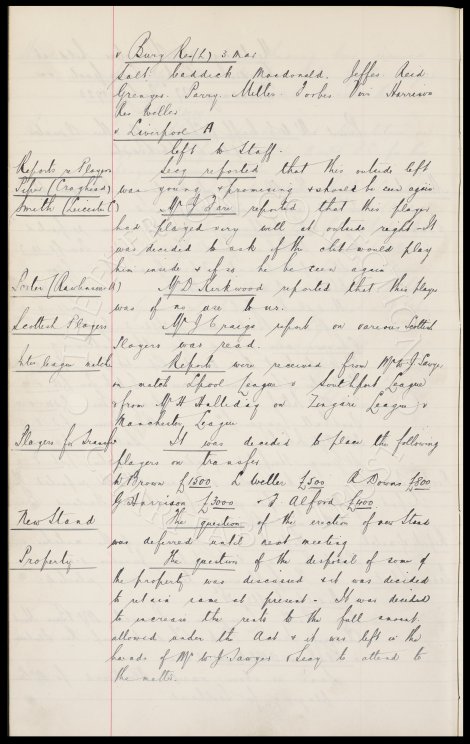 v Bury Res (L) 3 Mar
Salt. Caddick Macdonald. Jeffes Reid
Grenyer. Parry. Miller. Forbes Harrison
Res Weller
v Liverpool A
left to Staff.
Reports re Players
Secy reported that this outside left
Piper (Croghead) was young & promising & should be seen again
Smith (Leicester C) Mr J reported that this player
had played very well at outside right. It
was decided to ask if the club would play
him inside & if so he be seen again
(A) Mr D Kirkwood reported that this player
was of no use to us.
Scottish Players Mr J Craigs report on various Scottish
Players was read.
Inter league match Reports were received from Mr W J Sawyer
on match Lpool League v Southport League
& from Mr H Halliday on Zingari League v
Manchester League
Players for Transfer It was decided to place the following
players on transfer
W Brown £1500 L Weller £500 R Downs £800
G Harrison £3000 & F Alford £400.
New Stand The question of the erection of new Stand
was deferred until next meeting
Property The question of the disposal of some of
the property was discussed & it was decided
to retain same at present. It was decided
to increase the rents to the full amount
allowed under the Act & it was left in the
hands of Mr W J Sawyer & Secy to attend to
the matter.